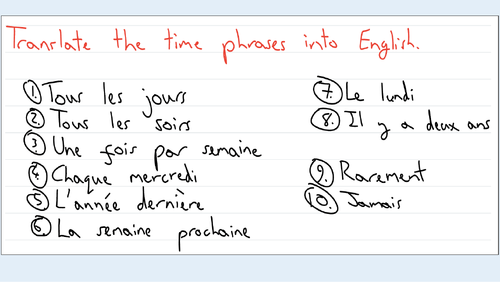 Translate the time phrases into English.
1. Tous les jours
2. Tous les soirs
3. Une fois par semaine
4. Chaque mercredi
5. L'année dernière
6. La semaine prochaine
7. Le lundi
8. Il y a deux ans
9. Rarement
10. Jamais